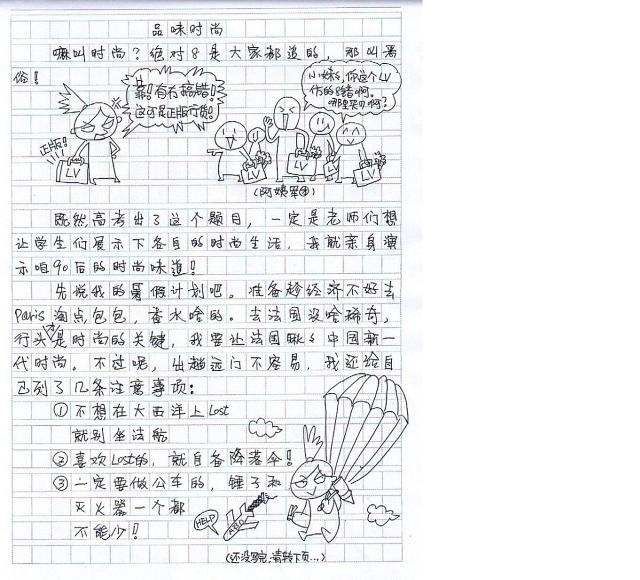 品味时尚
嘛叫时尚？绝对8是大家都追的，那叫庸
俗！
靠！有冇搞错！
这可是正版行货！
小妹，你这个LV
仿的8错啊。
哪里买D啊？
正版！
LV
LV
LV
LV
LV
(阿姨军团)
既然高考出了这个题目，一定是老师们想
让学生们展示下各自的时尚生活，我就亲身演
示咱90后的时尚味道！
先说我的暑假计划吧。准备趁经济不好去
Paris淘点包包，香水啥的。去法国没啥稀奇，
行头才是时尚的关键，我要让法国瞅瞅中国新一
代时尚。不过呢，出趟远门不容易，我还给自
己列了几条注意事项：
①不想在大西洋上Lost
就别坐法航
②喜欢Lost的，就自备降落伞！
③一定要做公车的，锤子和
灭火器一个都
不能少！
HELP
(还没写完，请转下页...)